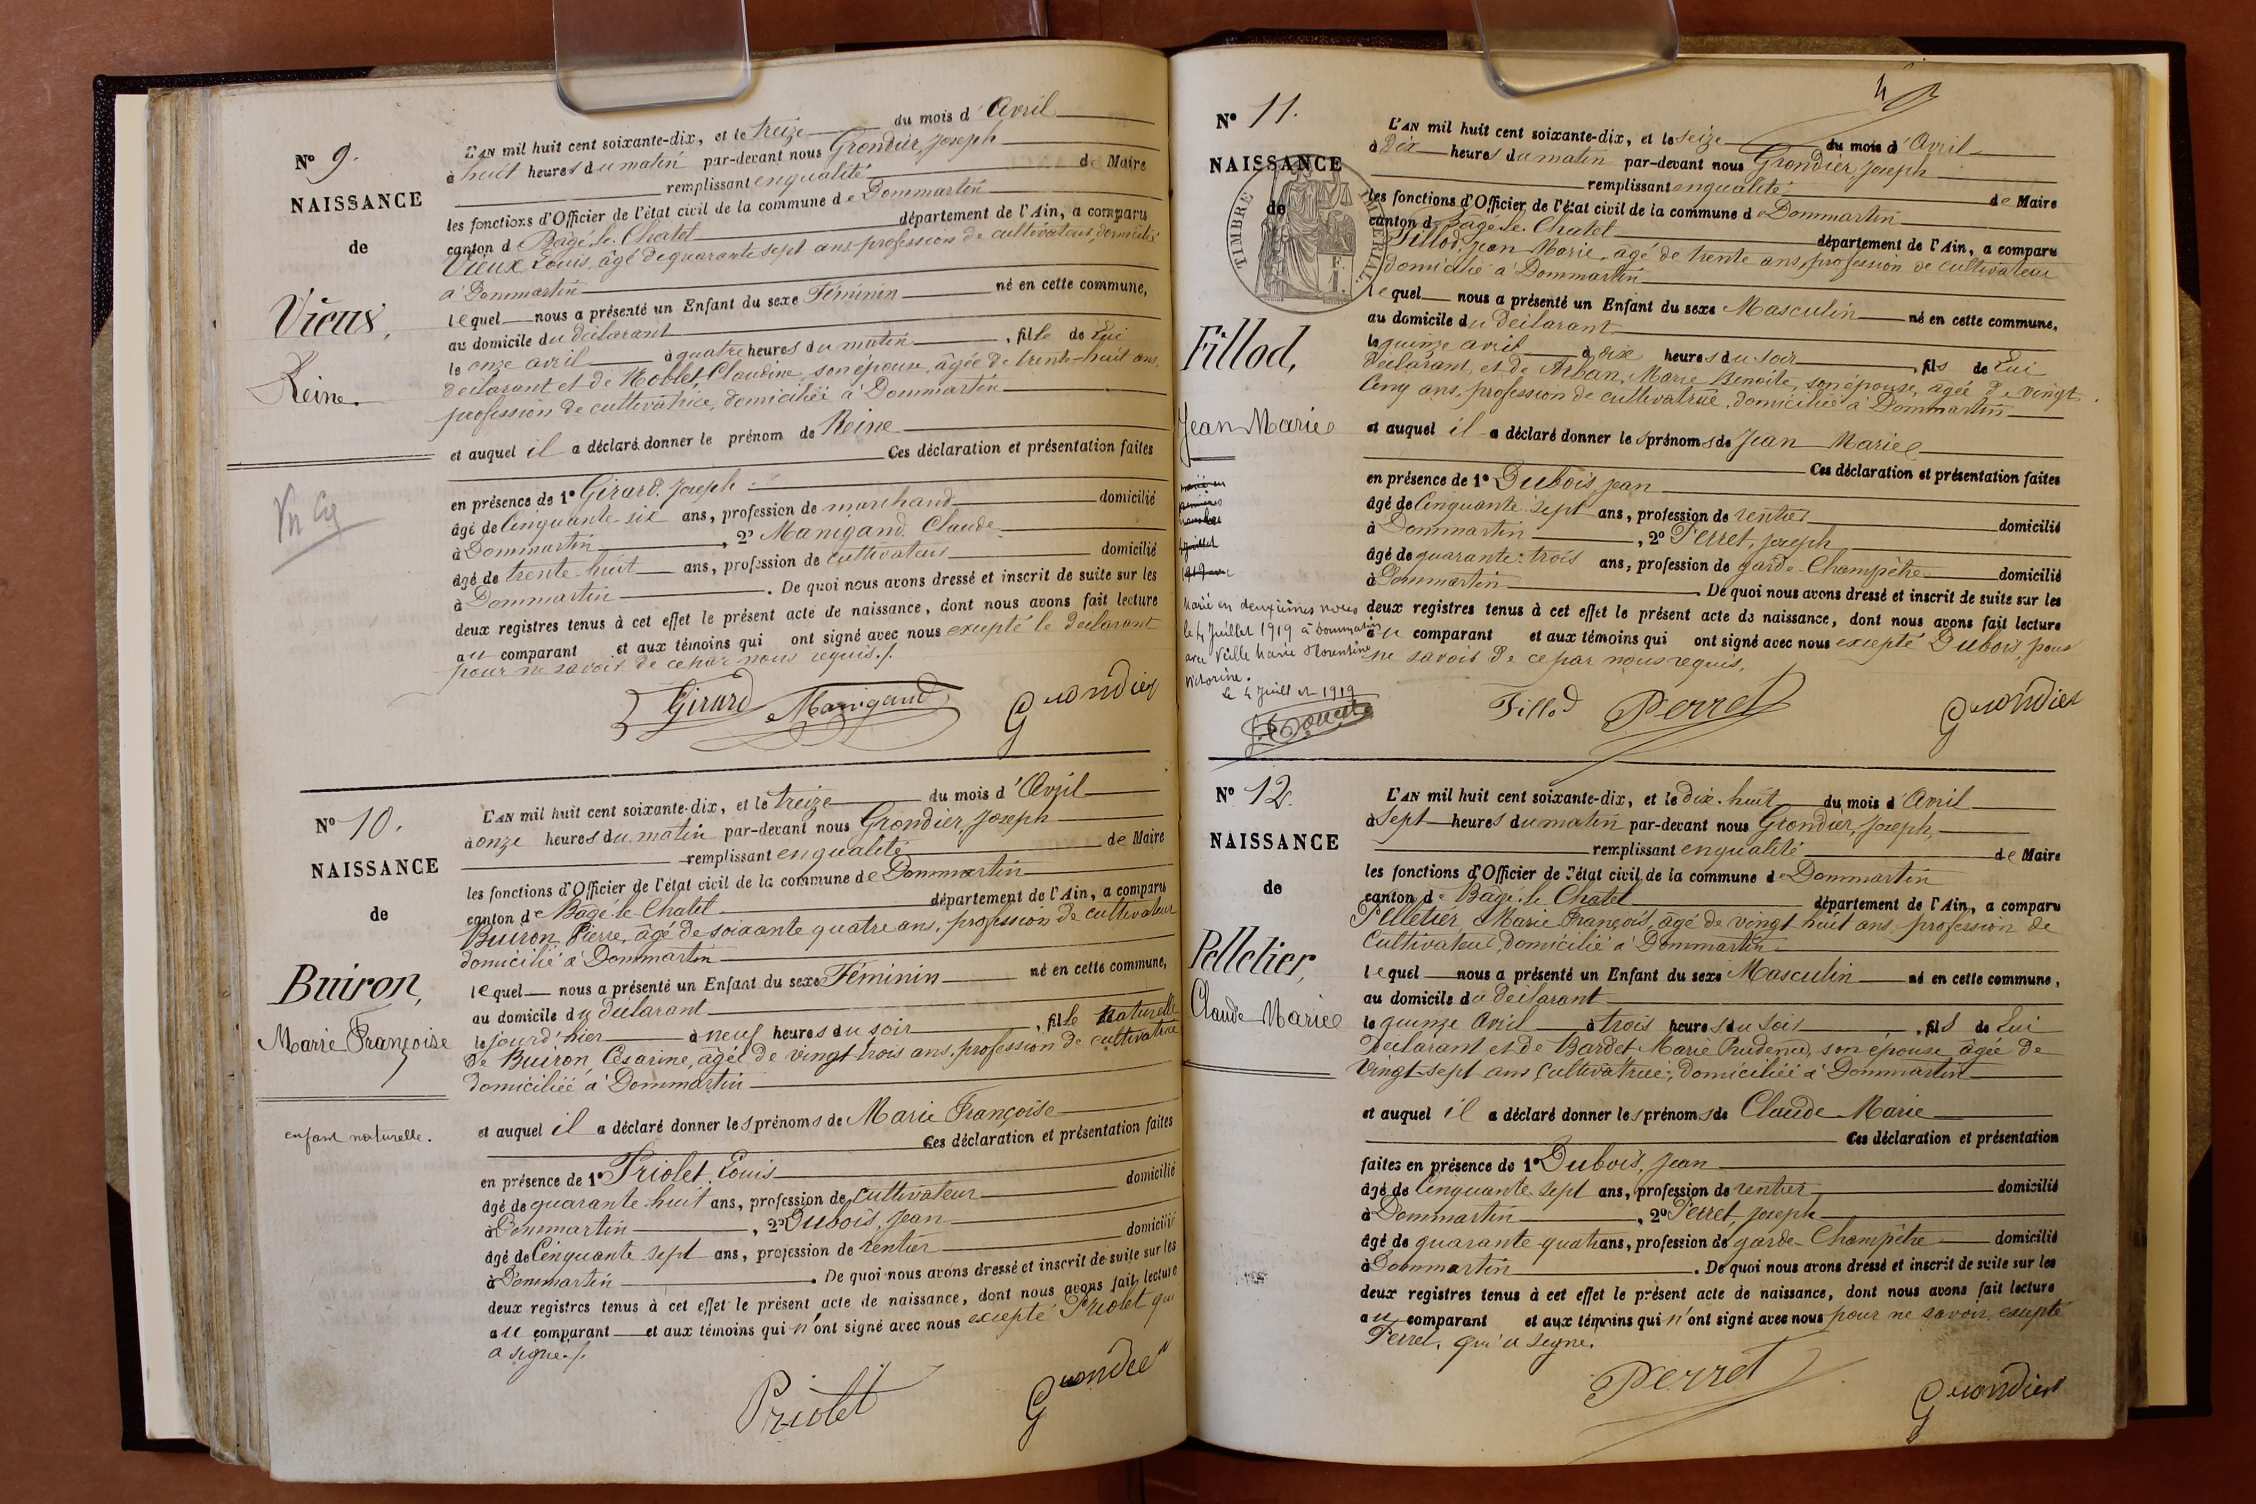 N° 9.
NAISSANCE
de
Vieux,
Reine.
L'AN mil huit cent soixante-dix, et le treize du mois d'Avril
à huit heures du matin par-devant nous Grondier, Joseph
de Maire
remplissant en qualité
les fonctions d'Officier de l'état civil de la commune de Dommartin
canton de Bagé-le-Chatel département de l'Ain, a comparu
Vieux Louis, âgé de quarante sept ans, profession de cultivateur, domicilié
à Dommartin
lequel nous a présenté un Enfant du sexe Féminin né en cette commune,
au domicile du déclarant
le onze avril à quatre heures du matin, fille de Lui
déclarant et de Noblet, Claudine, son épouse, âgée de trente-huit ans,
profession de cultivatrice, domiciliée à Dommartin
et auquel il a déclaré donner le prénom de Reine
Ces déclaration et présentation faites
en présence de 1° Girard, Joseph
âgé de Cinquante-six ans, profession de marchand domicilié
à Dommartin, 2° Manigand Claude
âgé de trente-huit ans, profession de cultivateur domicilié
à Dommartin. De quoi nous avons dressé et inscrit de suite sur les
deux registres tenus à cet effet le présent acte de naissance, dont nous avons fait lecture
au comparant et aux témoins qui ont signé avec nous excepté le déclarant
pour ne savoir de ce par nous requis./.
Girard Manigand Grondier
N° 10.
NAISSANCE
de
Buiron,
Marie Françoise
enfant naturelle.
L'AN mil huit cent soixante-dix, et le treize du mois d'Avril
à onze heures du matin par-devant nous Grondier, Joseph
de Maire
remplissant en qualité
les fonctions d'Officier de l'état civil de la commune de Dommartin
canton de Bagé-le-Chatel département de l'Ain, a comparu
Buiron, Pierre, âgé de soixante quatre ans, profession de cultivateur
domicilié à Dommartin
lequel nous a présenté un Enfant du sexe Féminin né en cette commune,
au domicile du déclarant
le jourd'hier à neuf heures du soir, fille Naturelle
de Buiron, Césarine, âgée de vingt-trois ans, profession de cultivatrice
domiciliée à Dommartin
et auquel il a déclaré donner les prénoms de Marie Françoise
Ces déclaration et présentation faites
en présence de 1° Priolet, Louis
âgé de quarante-huit ans, profession de cultivateur domicilié
à Dommartin, 2° Dubois, Jean
âgé de Cinquante sept ans, profession de rentier domicilié
à Dommartin. De quoi nous avons dressé et inscrit de suite sur les
deux registres tenus à cet effet le présent acte de naissance, dont nous avons fait lecture
au comparant et aux témoins qui n'ont signé avec nous excepté Priolet qui
a signé./.
Priolet Grondier
N° 11.
NAISSANCE
de
TIMBRE IMPÉRIAL
Fillod,
Jean Marie
Marié en deuxièmes noces
le 4 Juillet 1919 à Dommartin
avec Veille Marie Florentine
Victorine.
le 4 Juillet 1919
L'AN mil huit cent soixante-dix, et le seize du mois d'Avril
à Dix heures du matin par-devant nous Grondier, Joseph
remplissant en qualité
de Maire
les fonctions d'Officier de l'état civil de la commune de Dommartin
canton de Bagé-le-Chatel département de l'Ain, a comparu
Fillod, Jean Marie, âgé de trente ans, profession de cultivateur
domicilié à Dommartin
lequel nous a présenté un Enfant du sexe Masculin né en cette commune,
au domicile du déclarant
le quinze avril à dix heures du soir, fils de Lui
déclarant, et de Arban, Marie Benoite, son épouse, âgée de vingt
Cinq ans, profession de cultivatrice, domiciliée à Dommartin
et auquel il a déclaré donner les prénoms de Jean Marie
Ces déclaration et présentation faites
en présence de 1° Dubois, Jean
âgé de Cinquante-sept ans, profession de rentier domicilié
à Dommartin, 2° Perret, Joseph
âgé de quarante-trois ans, profession de garde-Champêtre domicilié
à Dommartin. De quoi nous avons dressé et inscrit de suite sur les
deux registres tenus à cet effet le présent acte de naissance, dont nous avons fait lecture
au comparant et aux témoins qui ont signé avec nous excepté Dubois, pour
ne savoir de ce par nous requis.
Fillod Perret Grondier
N° 12.
NAISSANCE
de
Pelletier,
Claude Marie
L'AN mil huit cent soixante-dix, et le dix-huit du mois d'Avril
à Sept heures du matin par-devant nous Grondier, Joseph,
remplissant en qualité de Maire
les fonctions d'Officier de l'état civil de la commune de Dommartin
canton de Bagé-le-Chatel département de l'Ain, a comparu
Pelletier, Marie François, âgé de vingt huit ans, profession de
Cultivateur, domicilié à Dommartin
lequel nous a présenté un Enfant du sexe Masculin né en cette commune,
au domicile du déclarant
le quinze Avril à trois heures du soir, fils de Lui
déclarant et de Bardet Marie Prudence, son épouse âgée de
Vingt-sept ans Cultivatrice, domiciliée à Dommartin
et auquel il a déclaré donner les prénoms de Claude Marie
Ces déclaration et présentation
faites en présence de 1° Dubois, Jean
âgé de Cinquante-sept ans, profession de rentier domicilié
à Dommartin, 2° Perret, Joseph
âgé de quarante-quatre ans, profession de garde-Champêtre domicilié
à Dommartin. De quoi nous avons dressé et inscrit de suite sur les
deux registres tenus à cet effet le présent acte de naissance, dont nous avons fait lecture
au comparant et aux témoins qui n'ont signé avec nous pour ne savoir, excepté
Perret, qui a signé.
Perret Grondier